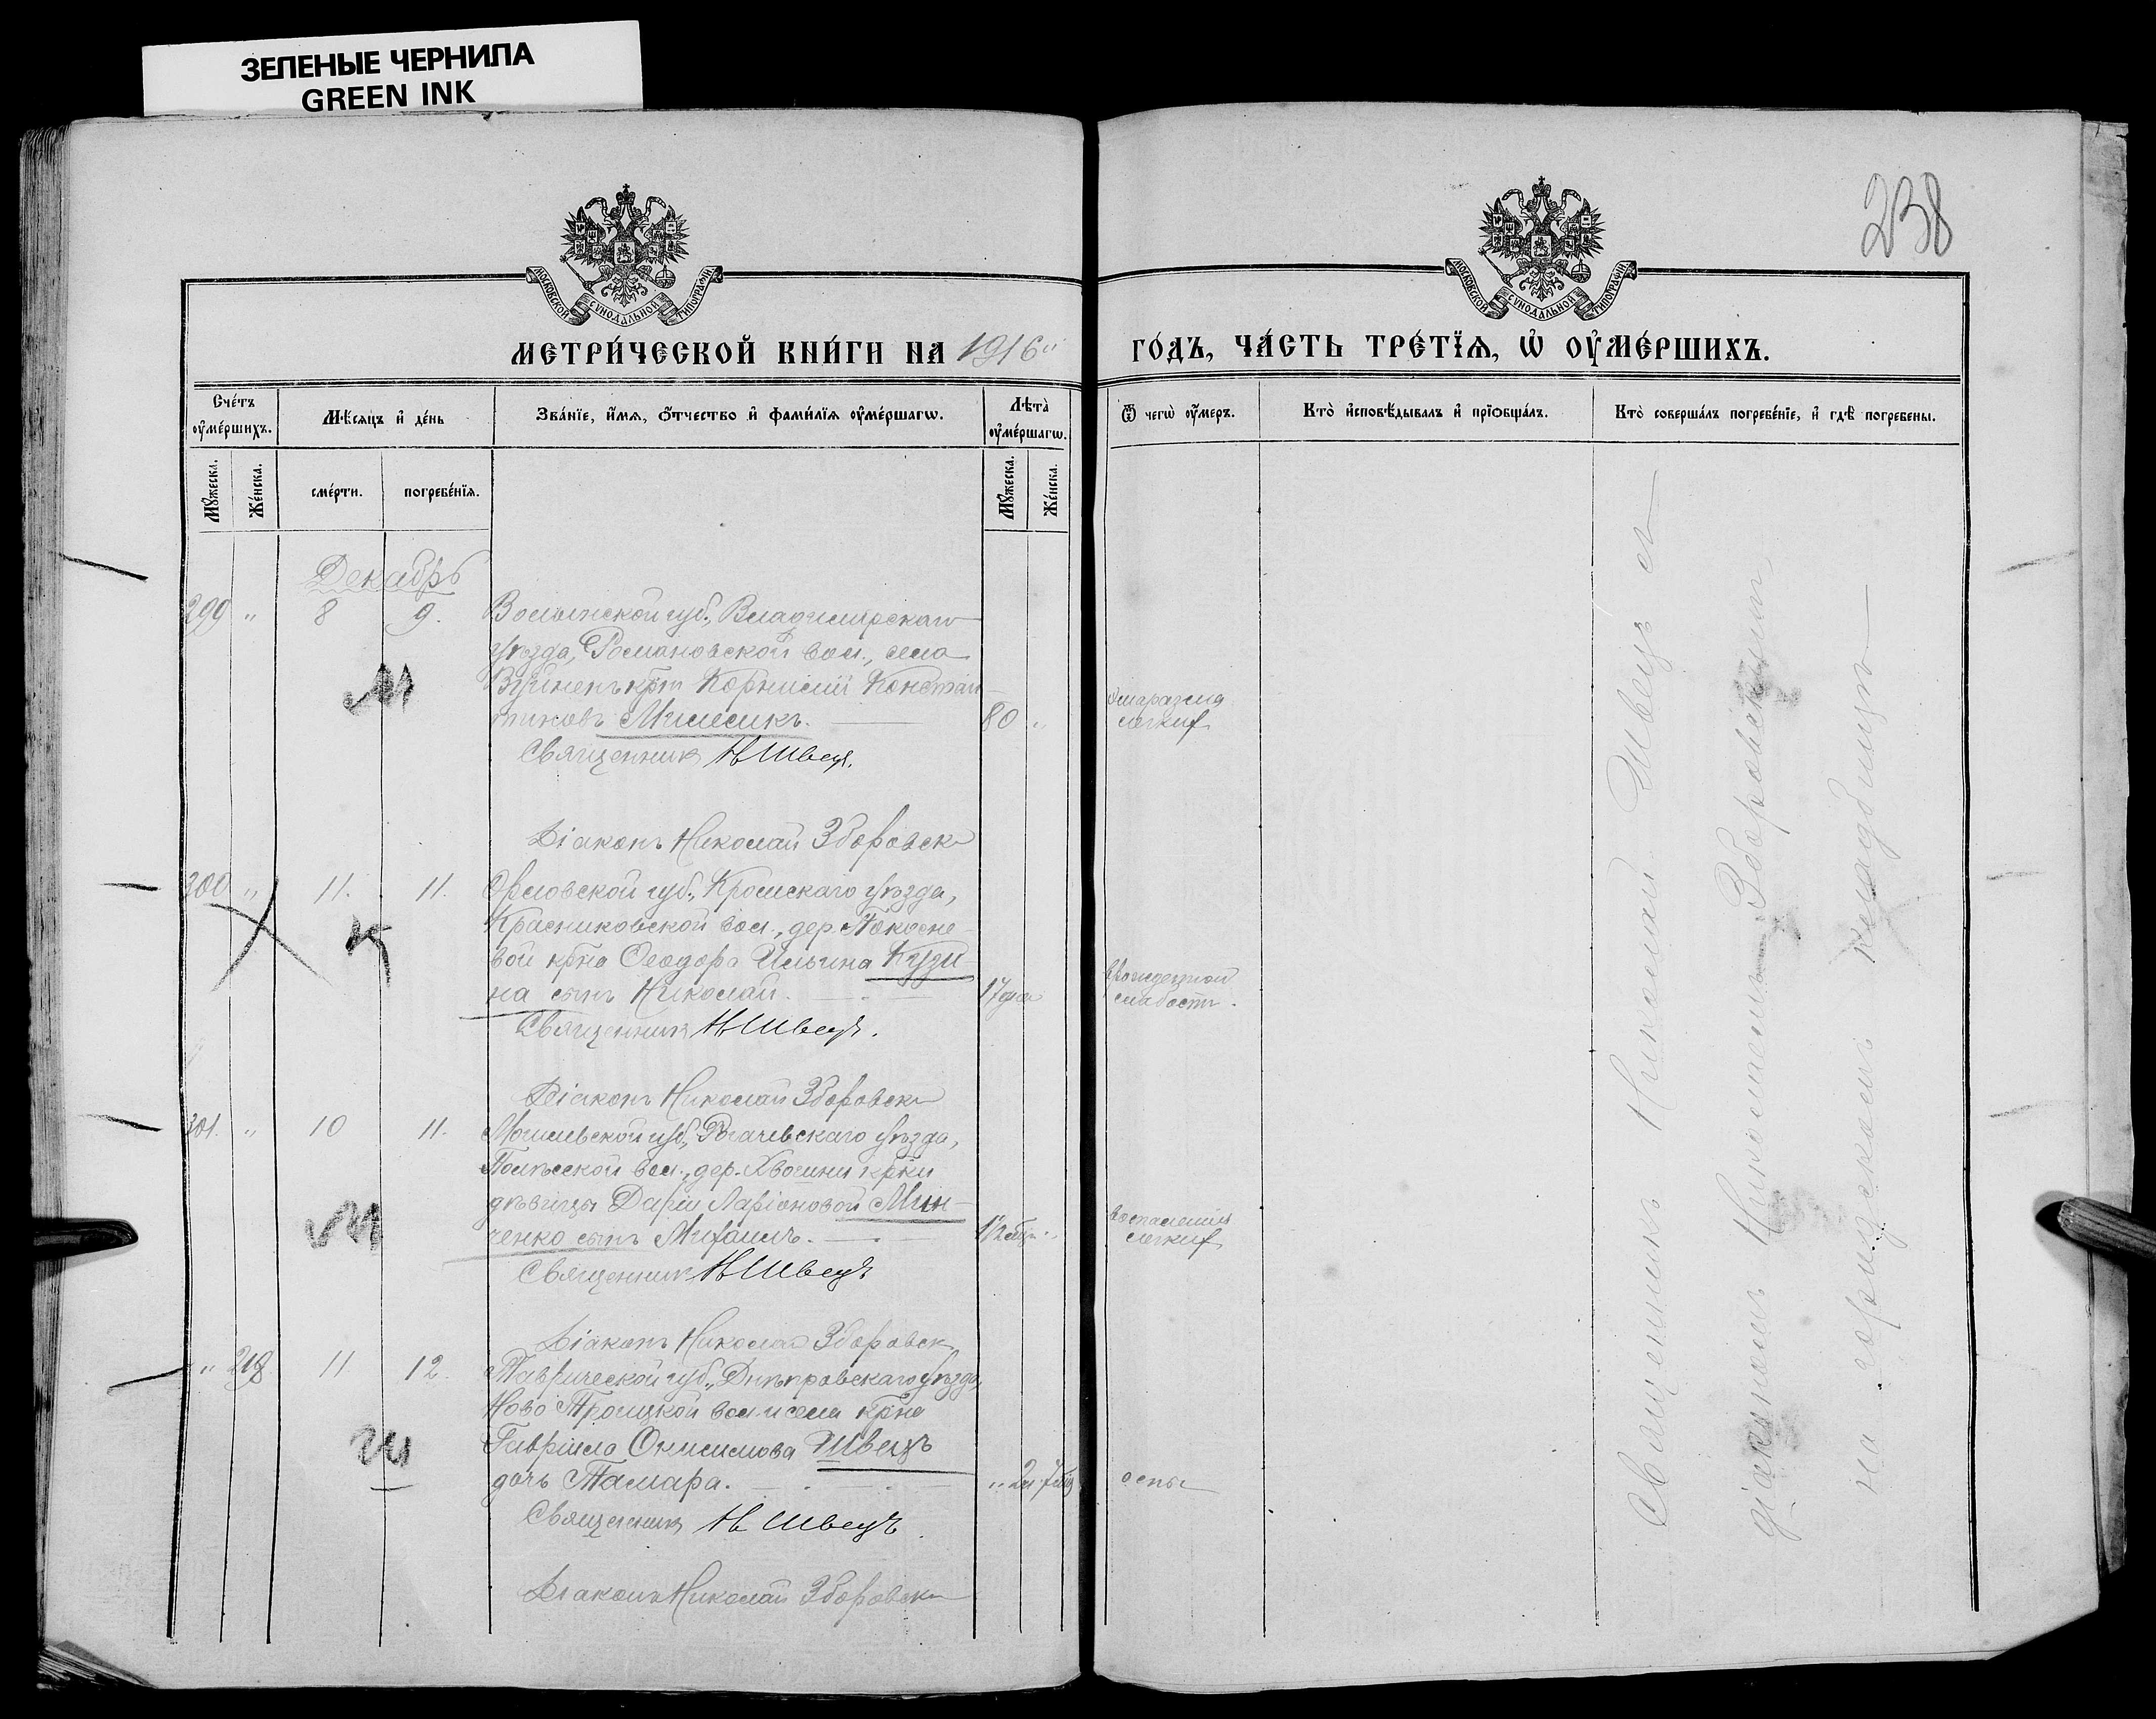 ЗЕЛЕНЫЕ ЧЕРНИЛА
GREEN INK
238
МОСКОВСКОЙ СѴНОДАЛЬНОЙ ТИПОГРАФІИ
МОСКОВСКОЙ СѴНОДАЛЬНОЙ ТИПОГРАФІИ
МЕТРИ́ЧЕСКОЙ КНИ́ГИ НА 1916
ГО́ДЪ, ЧА́СТЬ ТРЕ́ТЇѦ, Ѡ҆ ОУ҆МЕ́РШИХЪ.
Сче́тъ оу҆ме́ршихъ.
Мѣ́сяцъ и҆ де́нь
Зва́нїе, и҆́мя, ѻ҆́тчество и҆ фами́лїя оу҆ме́ршагѡ.
Лѣ̀та̀ оу҆ме́ршагѡ.
Ѿ чегѡ̀ оу҆́меръ.
Кто̀ и҆сповѣ́дывалъ и҆ прїѡбща́лъ.
Кто̀ соверша́лъ погребе́нїе, и҆ гдѣ̀ погребены.
Мꙋ́жеска.
Же́нска.
сме́рти.
погребе́нїя.
Мꙋ́жеска.
Же́нска.
Декабрь
299 " 8 9. Волынской губ., Владимірскаго
уѣзда, Романовской вол., села
крт Корнилій Констан-
тиновъ Милесикъ. 80 "
легких
Священникъ Н Швецъ.
Діаконъ Николай Зборовск
300 " 11. 11. Орловской губ., Кромскаго уѣзда,
Красниковской вол., дер.
вой крна Ѳеодора Ильина Кузи-
на сынъ Николай. 17 дня
врожденной
слабости.
Священникъ Н Швецъ.
Діаконъ Николай Зборовск
301. " 10 11. Могилевской губ., Рогачевскаго уѣзда,
Полѣсской вол., дер. Хвощни крки
дѣвицы Даріи Ларіоновой Мин-
ченко сынъ Михаилъ.
воспаленія
легких
Священникъ Н Швецъ
Діаконъ Николай Зборовск
" 11 12. Таврической губ., Днѣпровскаго уѣзда,
Ново Троицкой вол. и села крна
Гавріила Онисимова Швецъ
дочь Тамара. "
оспы
Священникъ Н Швецъ
Діаконъ Николай Зборовск
Священникъ Николай Швецъ съ
діакономъ Николаемъ Зборовскимъ
на городскомъ кладбищѣ